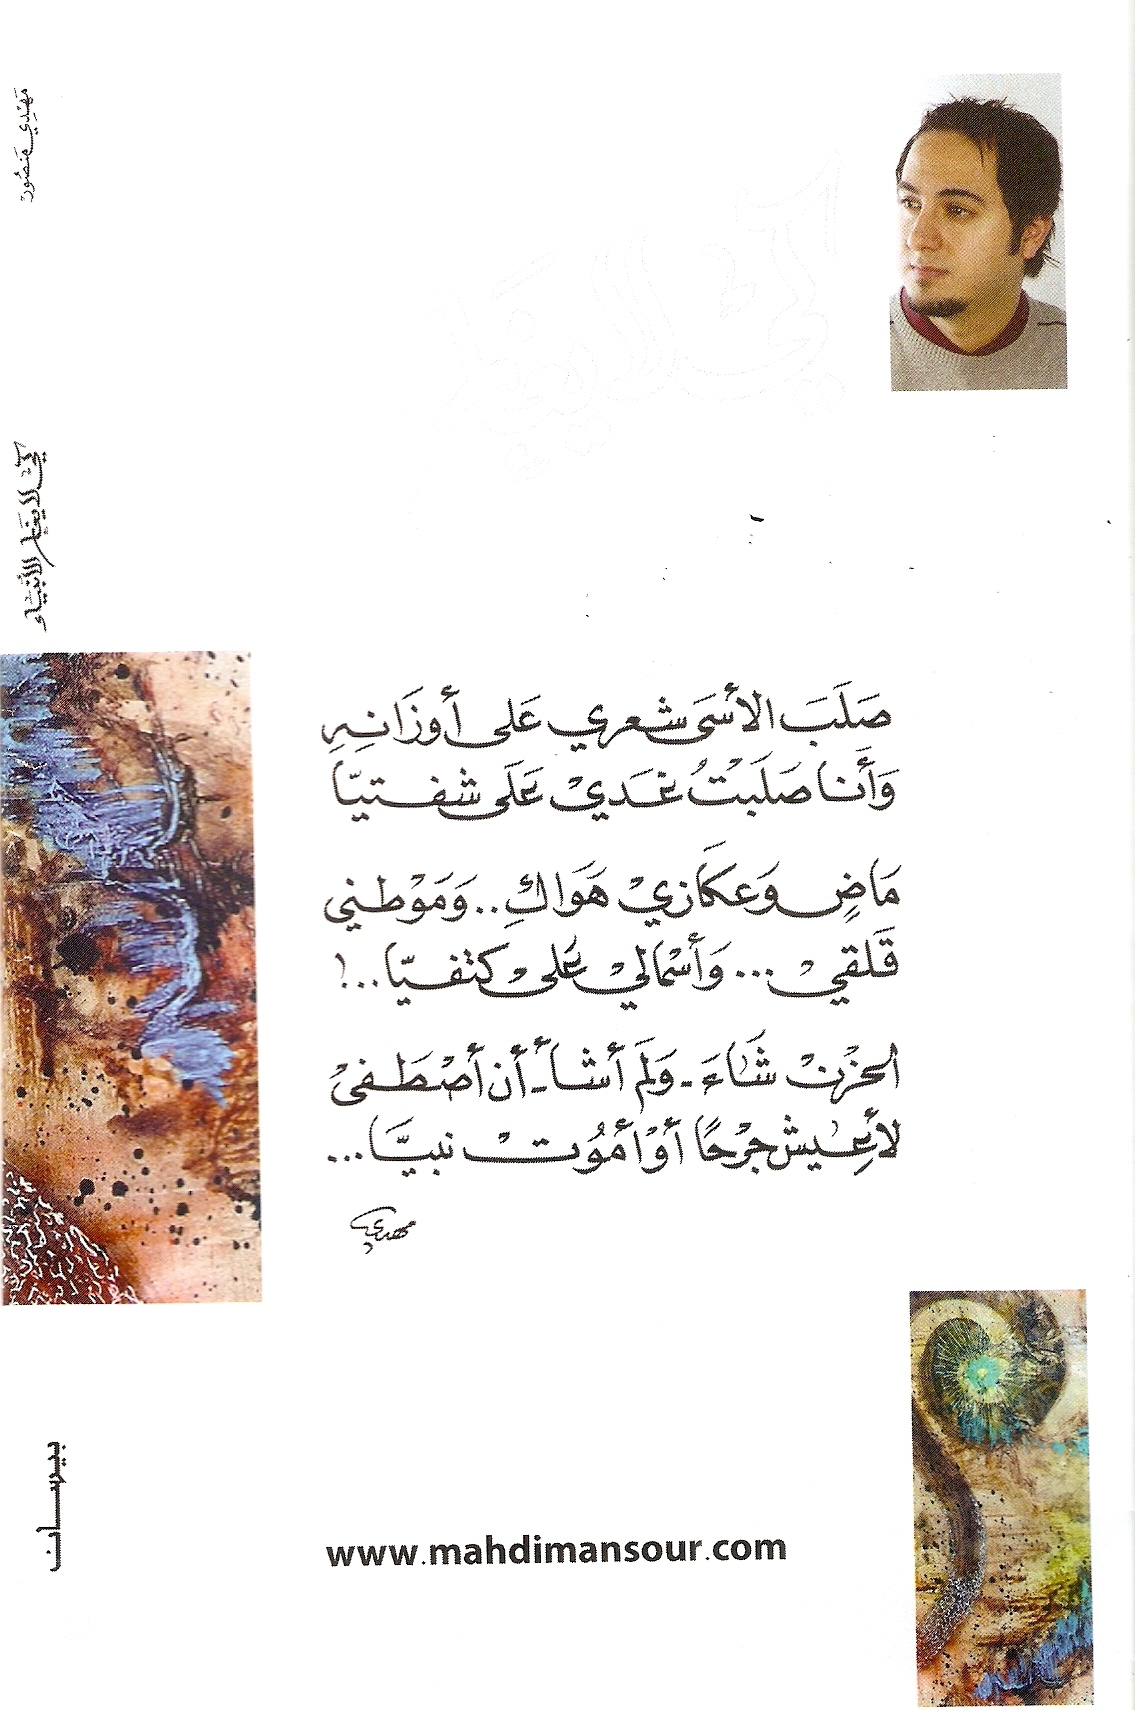 مَهْدِي مَنصُور
كَيْ لا يَغَارَ الأنْبيَاء
صَلَبَ الأسَى شعري عَلى أوزَانِهِ
وَأَنا صَلَبْتُ غَدَيْ عَلَى شفتيّا
مَاضٍ وَعكازيْ هَوَاكِ.. وَمَوْطني
قَلقيْ ... وَأسْماليْ عَلىْ كتفيّا..!
الحزْن شَاءَ - وَلَم أشأ - أن أصْطَفىْ
لأعِيش جرْحًا أوْ أمُوْت نبيَّا...
مهدي
بيسان
www.mahdimansour.com